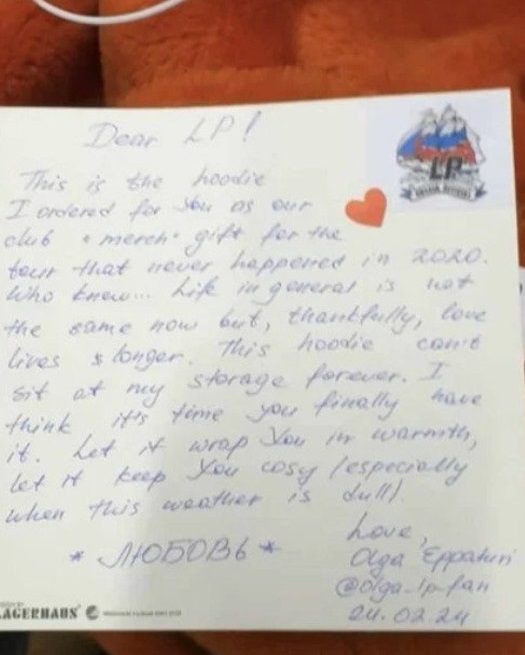 Dear LP!
LP
This is the hoodie
I ordered for You as our
club "merch" gift for the
tour that never happened in 2020.
Who knew... Life in general is not
the same now but, thankfully, love
lives longer. This hoodie can't
sit at my storage forever. I
think it's time you finally have
it. Let it wrap You in warmth,
let it keep You cosy (especially
when this weather is dull).
Love,
* ЛЮБОВЬ *
Olga Eppaturi
@olga_lp_fan
24.02.24
LAGERHAUS